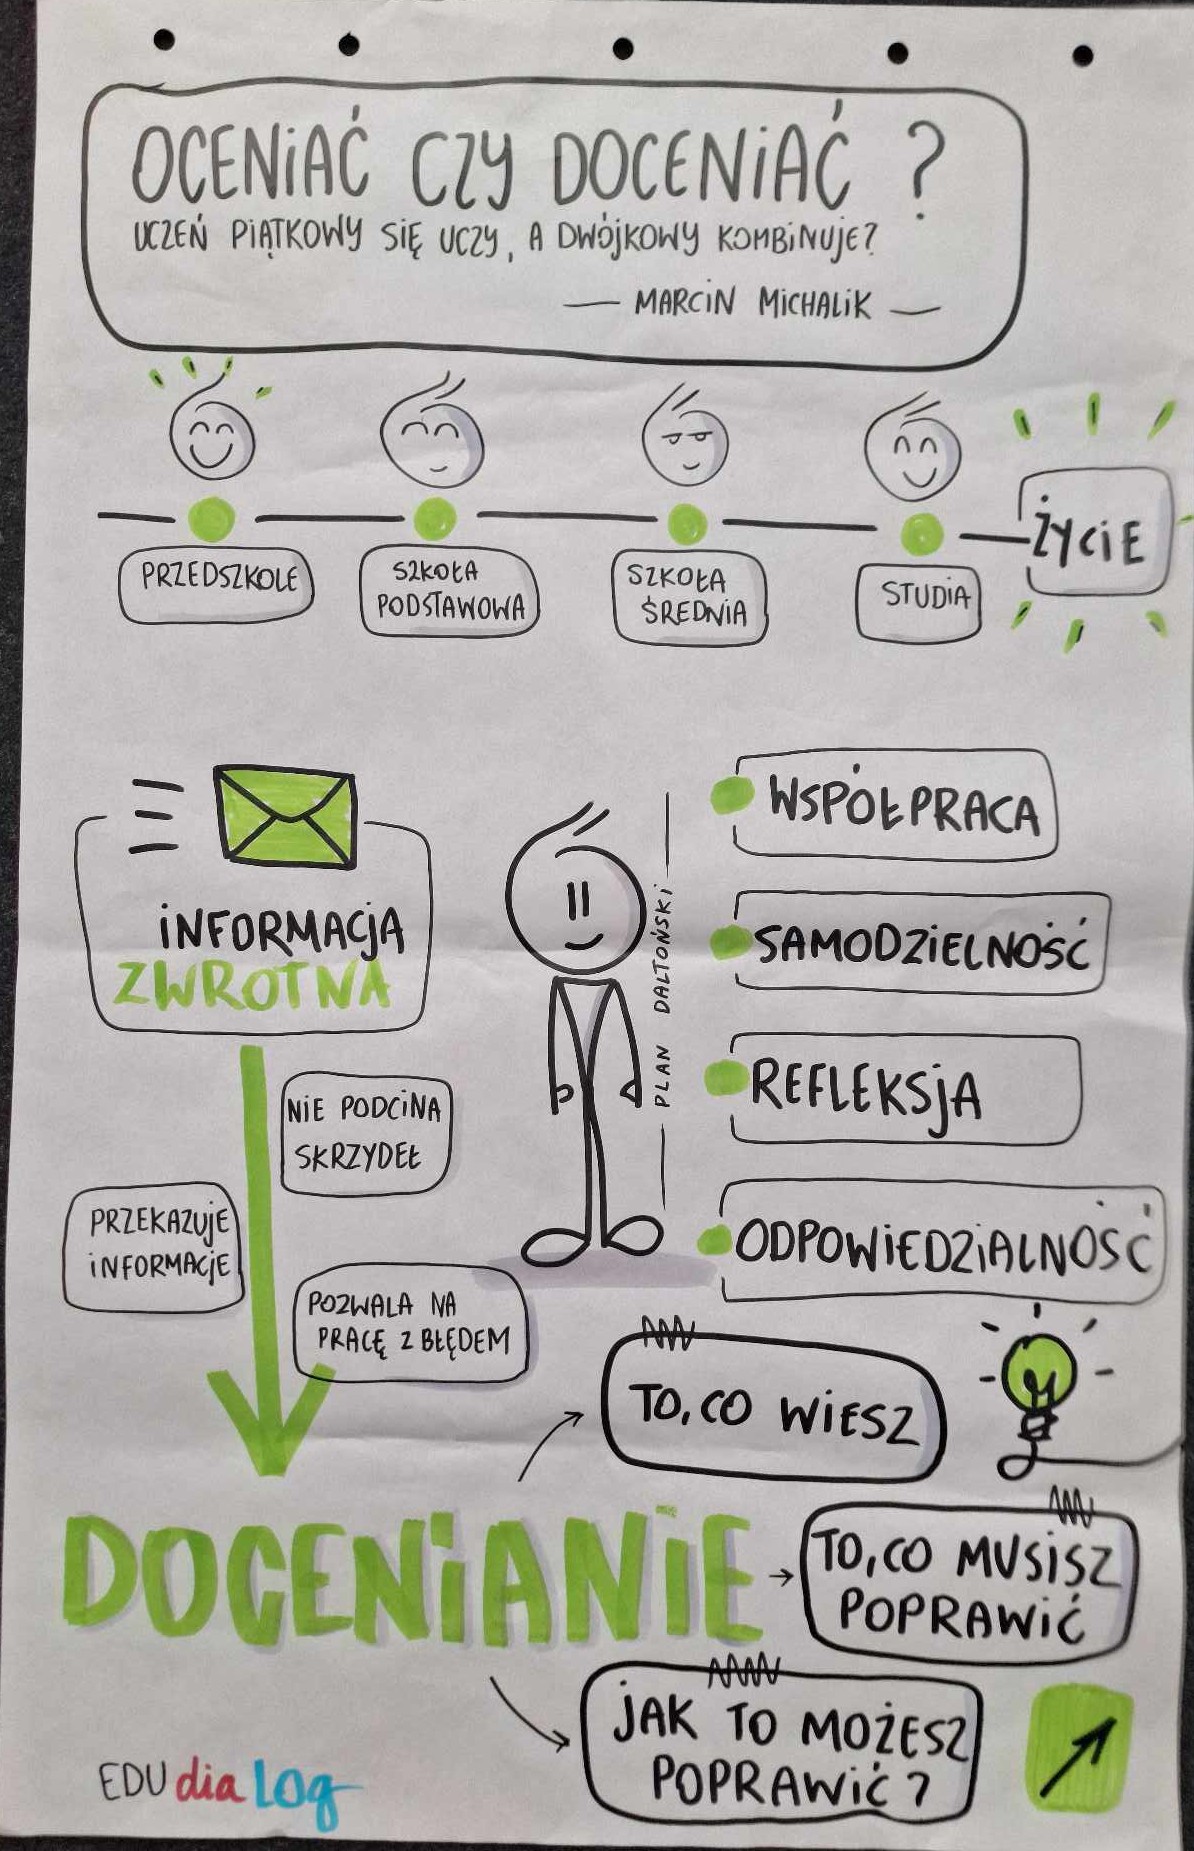 OCENIAĆ CZY DOCENIAĆ ?
UCZEŃ PIĄTKOWY SIĘ UCZY, A DWÓJKOWY KOMBINUJE?
— MARCIN MICHALIK —
PRZEDSZKOLE
SZKOŁA
PODSTAWOWA
SZKOŁA
ŚREDNIA
STUDIA
ŻYCIE
INFORMACJA
ZWROTNA
NIE PODCINA
SKRZYDEŁ
PRZEKAZUJE
INFORMACJE
POZWALA NA
PRACĘ Z BŁĘDEM
PLAN DALTOŃSKI
WSPÓŁPRACA
SAMODZIELNOŚĆ
REFLEKSJA
ODPOWIEDZIALNOŚĆ
DOCENIANIE
TO, CO WIESZ
TO, CO MUSISZ
POPRAWIĆ
JAK TO MOŻESZ
POPRAWIĆ?
EDUdiaLog